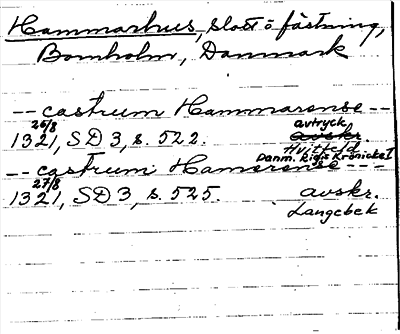 Hammarhus, slott o fästning,
Bornholm, Danmark
-- castrum Hammarense --
26/8 avtryck
1321, SD 3, s. 522. avskr.
Hvitfeld
Danm. Rigis Krønicke I
-- castrum Hamerense --
27/8
1321, SD 3, s. 525. avskr.
Langebek